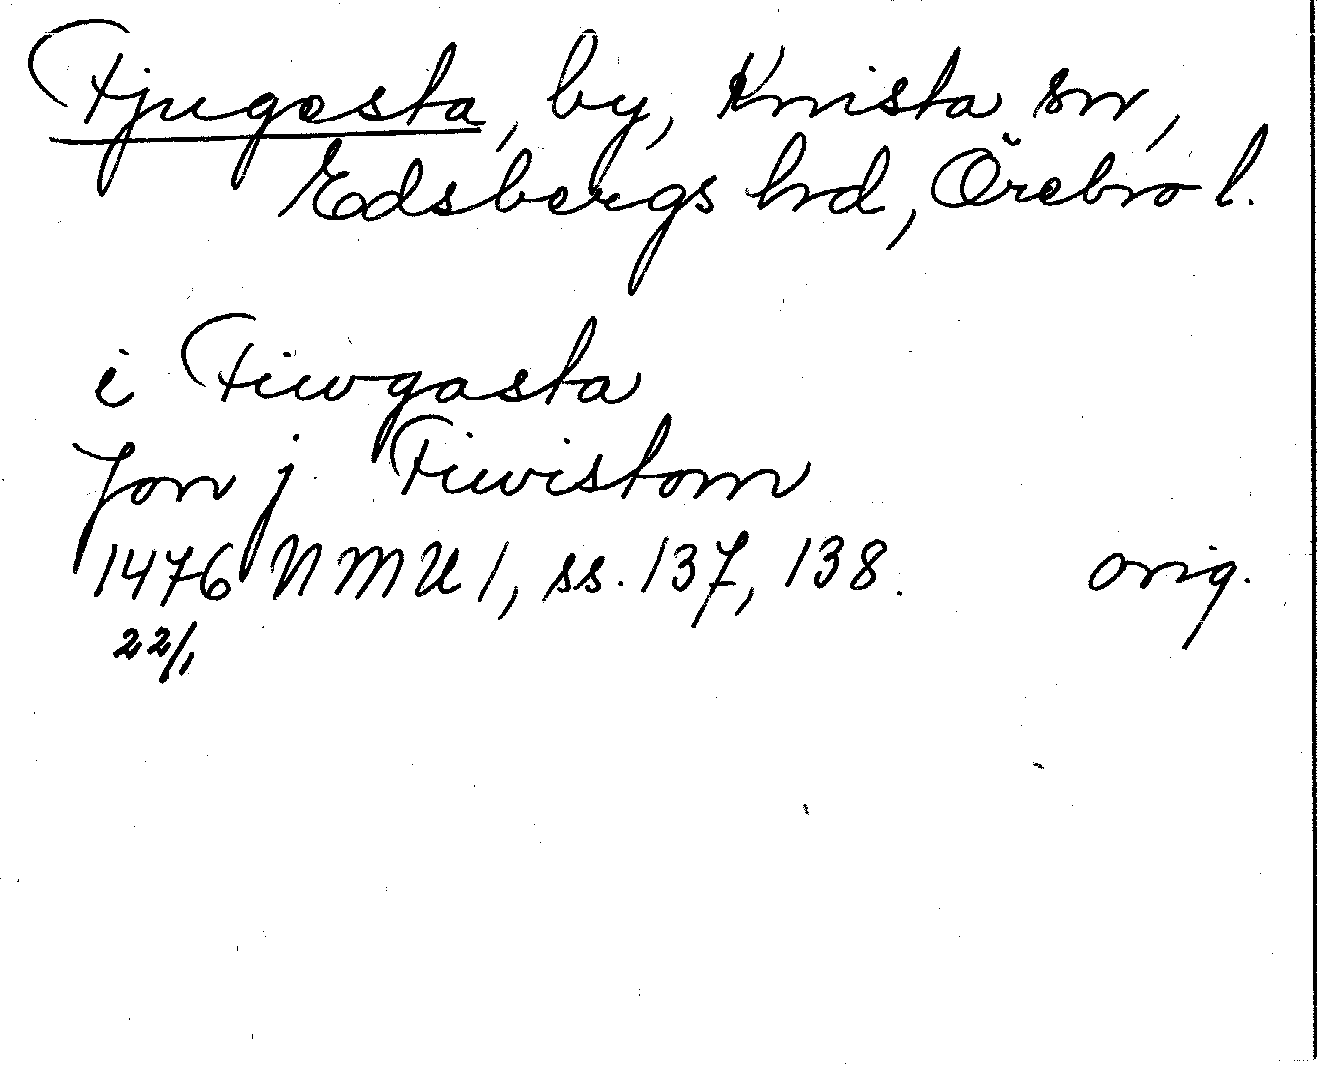 Fjugesta, by, Knista sn,
Edsbergs hrd, Örebro l.
i Fiwgasta
Jon j Fiwistom
1476 NMU 1, ss. 137, 138. orig.
22/1